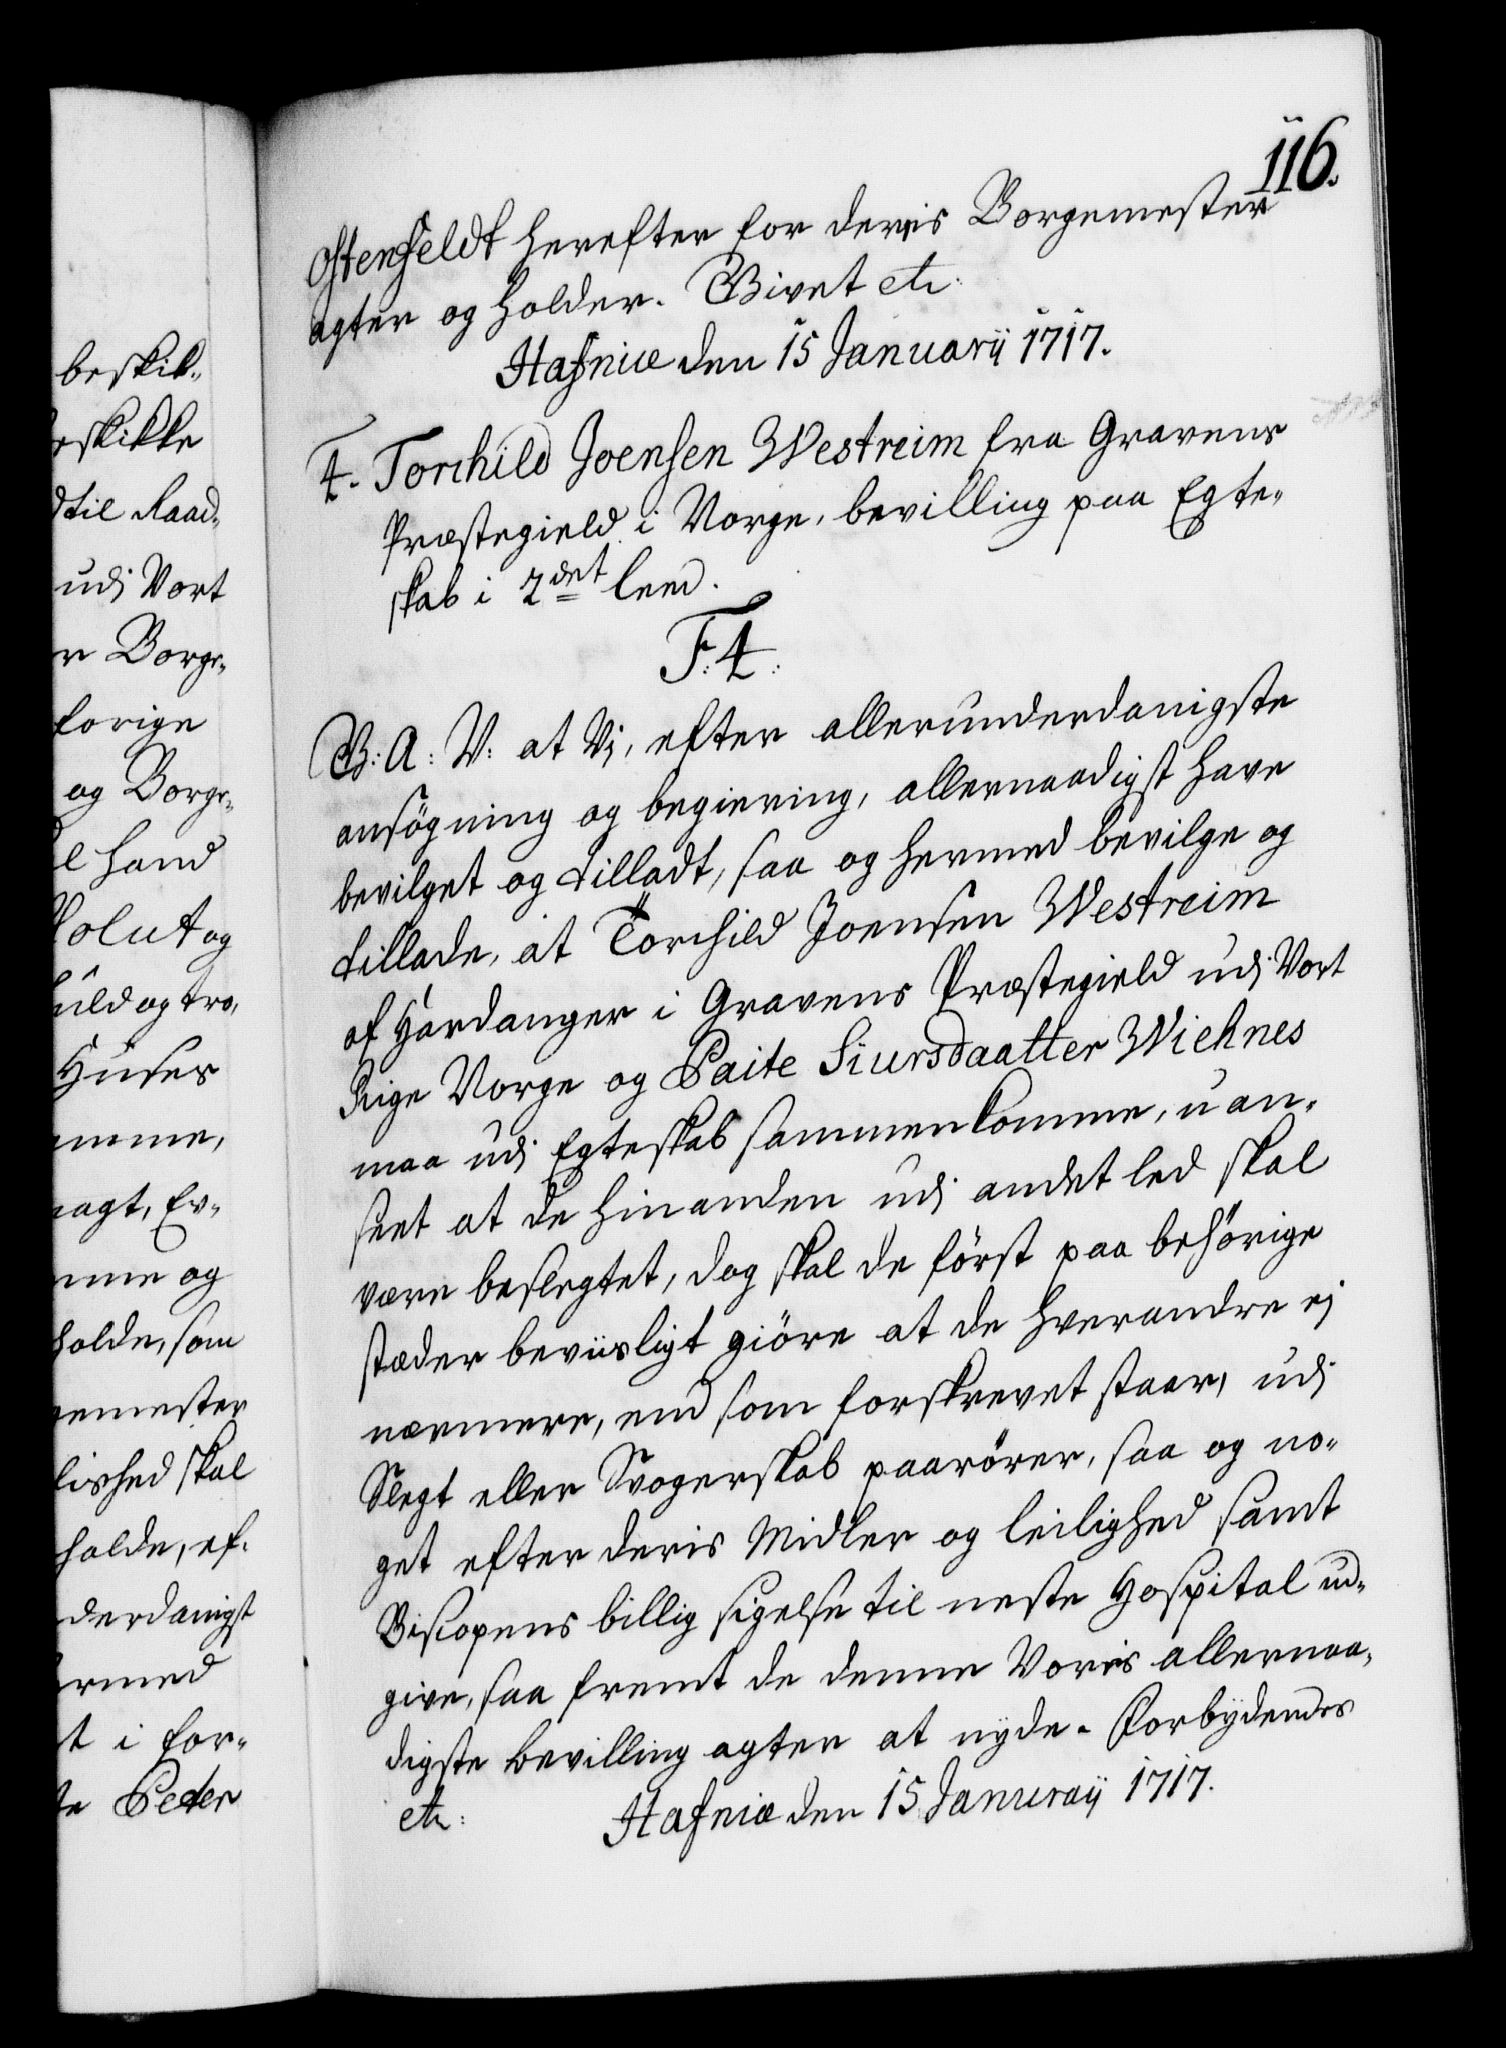 116.
Ostenfeldt herefter for deris Borgemester
agter og holder. Givet etc:
Hafniæ den 15 Januarij 1717.
Torchild Joensen Westreim fra Gravens
Præstegield i Norge, bevilling paa Egte-
skab i 2det leed.
F. 4.
G: A: V: at Vj, efter allerunderdanigste
ansögning og begiering, allernaadigst have
bevilget og tilladt, saa og hermed bevilge og
tillade, at Torchild Joensen Westreim
af Hardanger i Gravens Præstegield udj Vort
Rige Norge og Paite Siursdaatter Wiehnes
maa udj Egteskab sammenkomme, uan-
seet at de hinanden udj andet led skal
være beslegtet, dog skal de först paa behörige
stæder beviisligt giöre at de hverandre ej
nærmere, end som forskrevet staar, udj
Slegt eller Svogerskab paarörer, saa og no-
get efter deris Midler og leilighed samt
Biscopens billig sigelse til neste Hospital ud-
give, saa fremt de denne Voris allernaa-
digste bevilling agter at nyde. Forbydendes
etc: Hafniæ den 15 Januraij 1717.
beskik-
eskikke
til Raad-
udj Vort
r Borge-
forige
og Borge-
l hand
olut og
uld og tro,
Huses
emme,
magt, Ev-
mme og
holde, som
gemester
lished skal
holde, ef-
derdanigst
ermed
t i for-
te Peder